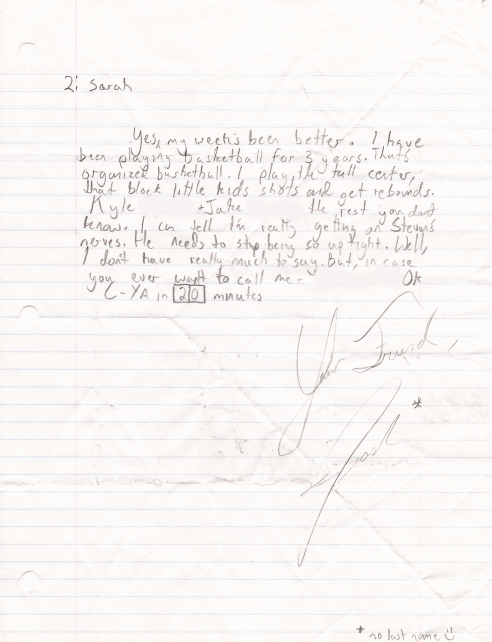 2: Sarah
Yes, my week's been better. I have
been playing basketball for 3 years. Thats
organized basketball. I play the tall center,
that block little kids shots and get rebounds.
Kyle + Jake the rest you dont
know. I can tell I'm really getting on Stevens
nerves. He needs to stop being so up tight. Well,
I don't have really much to say. But, in case
you ever want to call me- Ok
C-YA in 20 minutes
Your Friend,
Josh *
* no last name